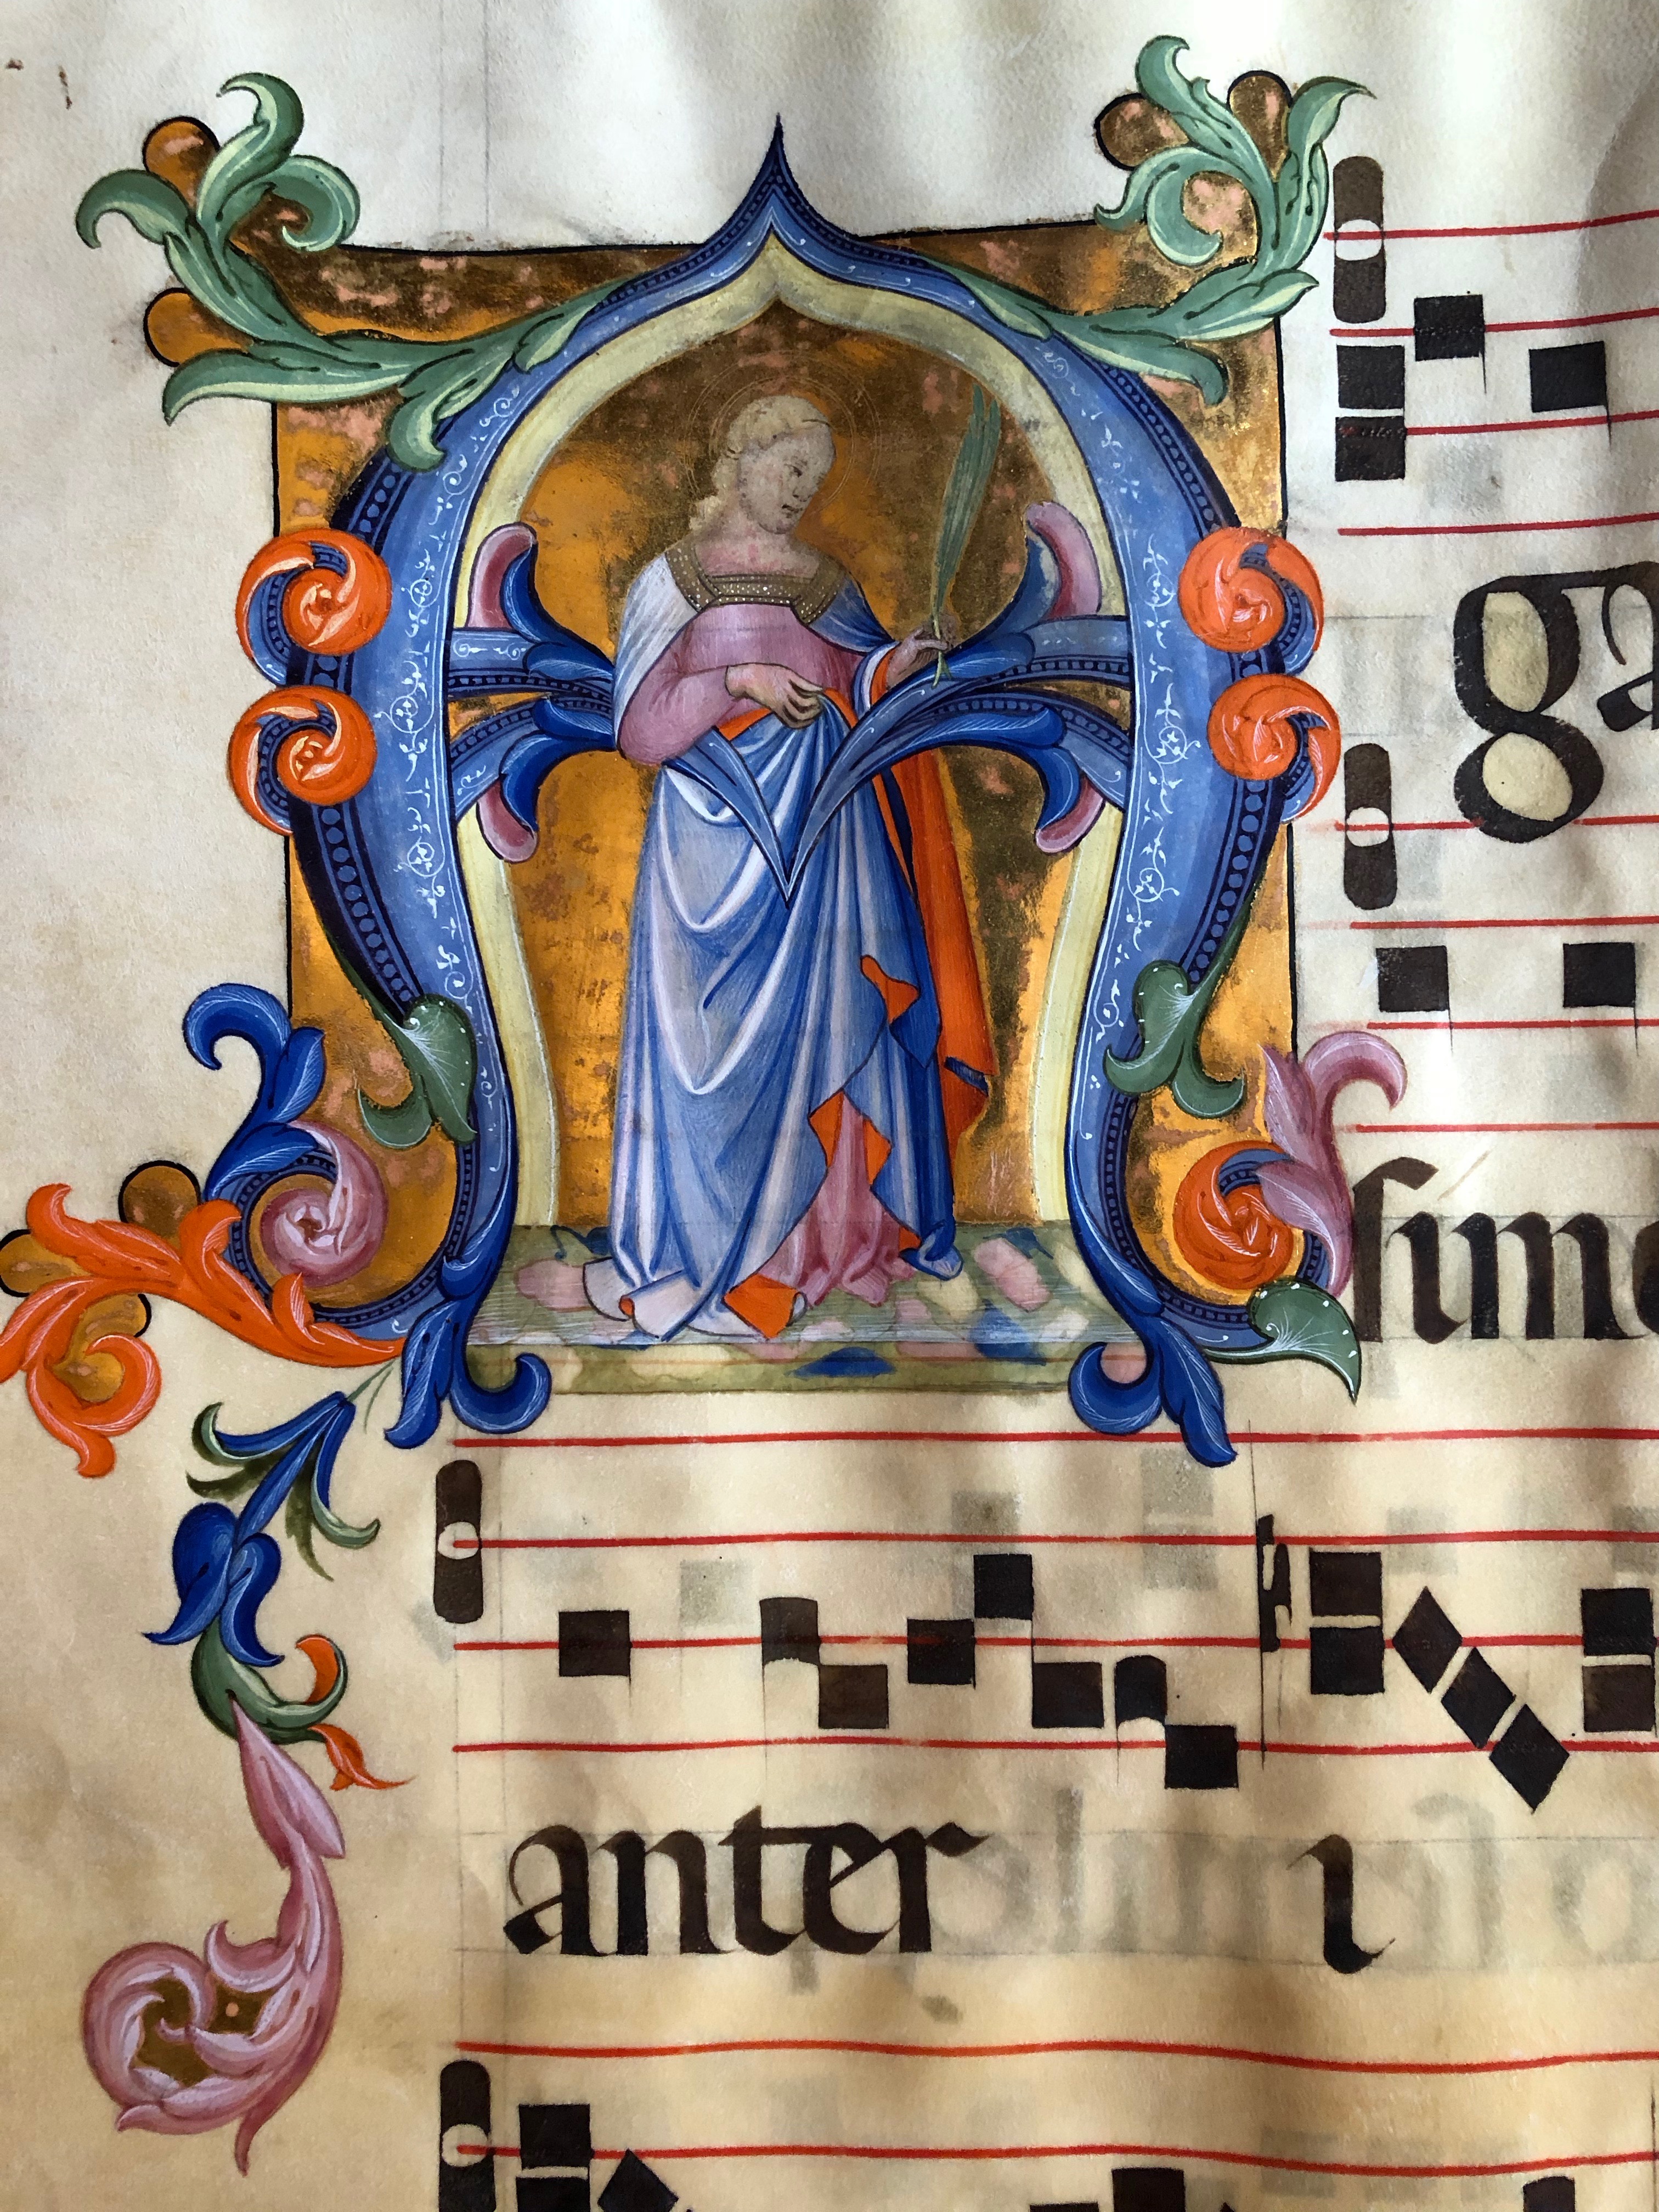 A ga
sime
anter i